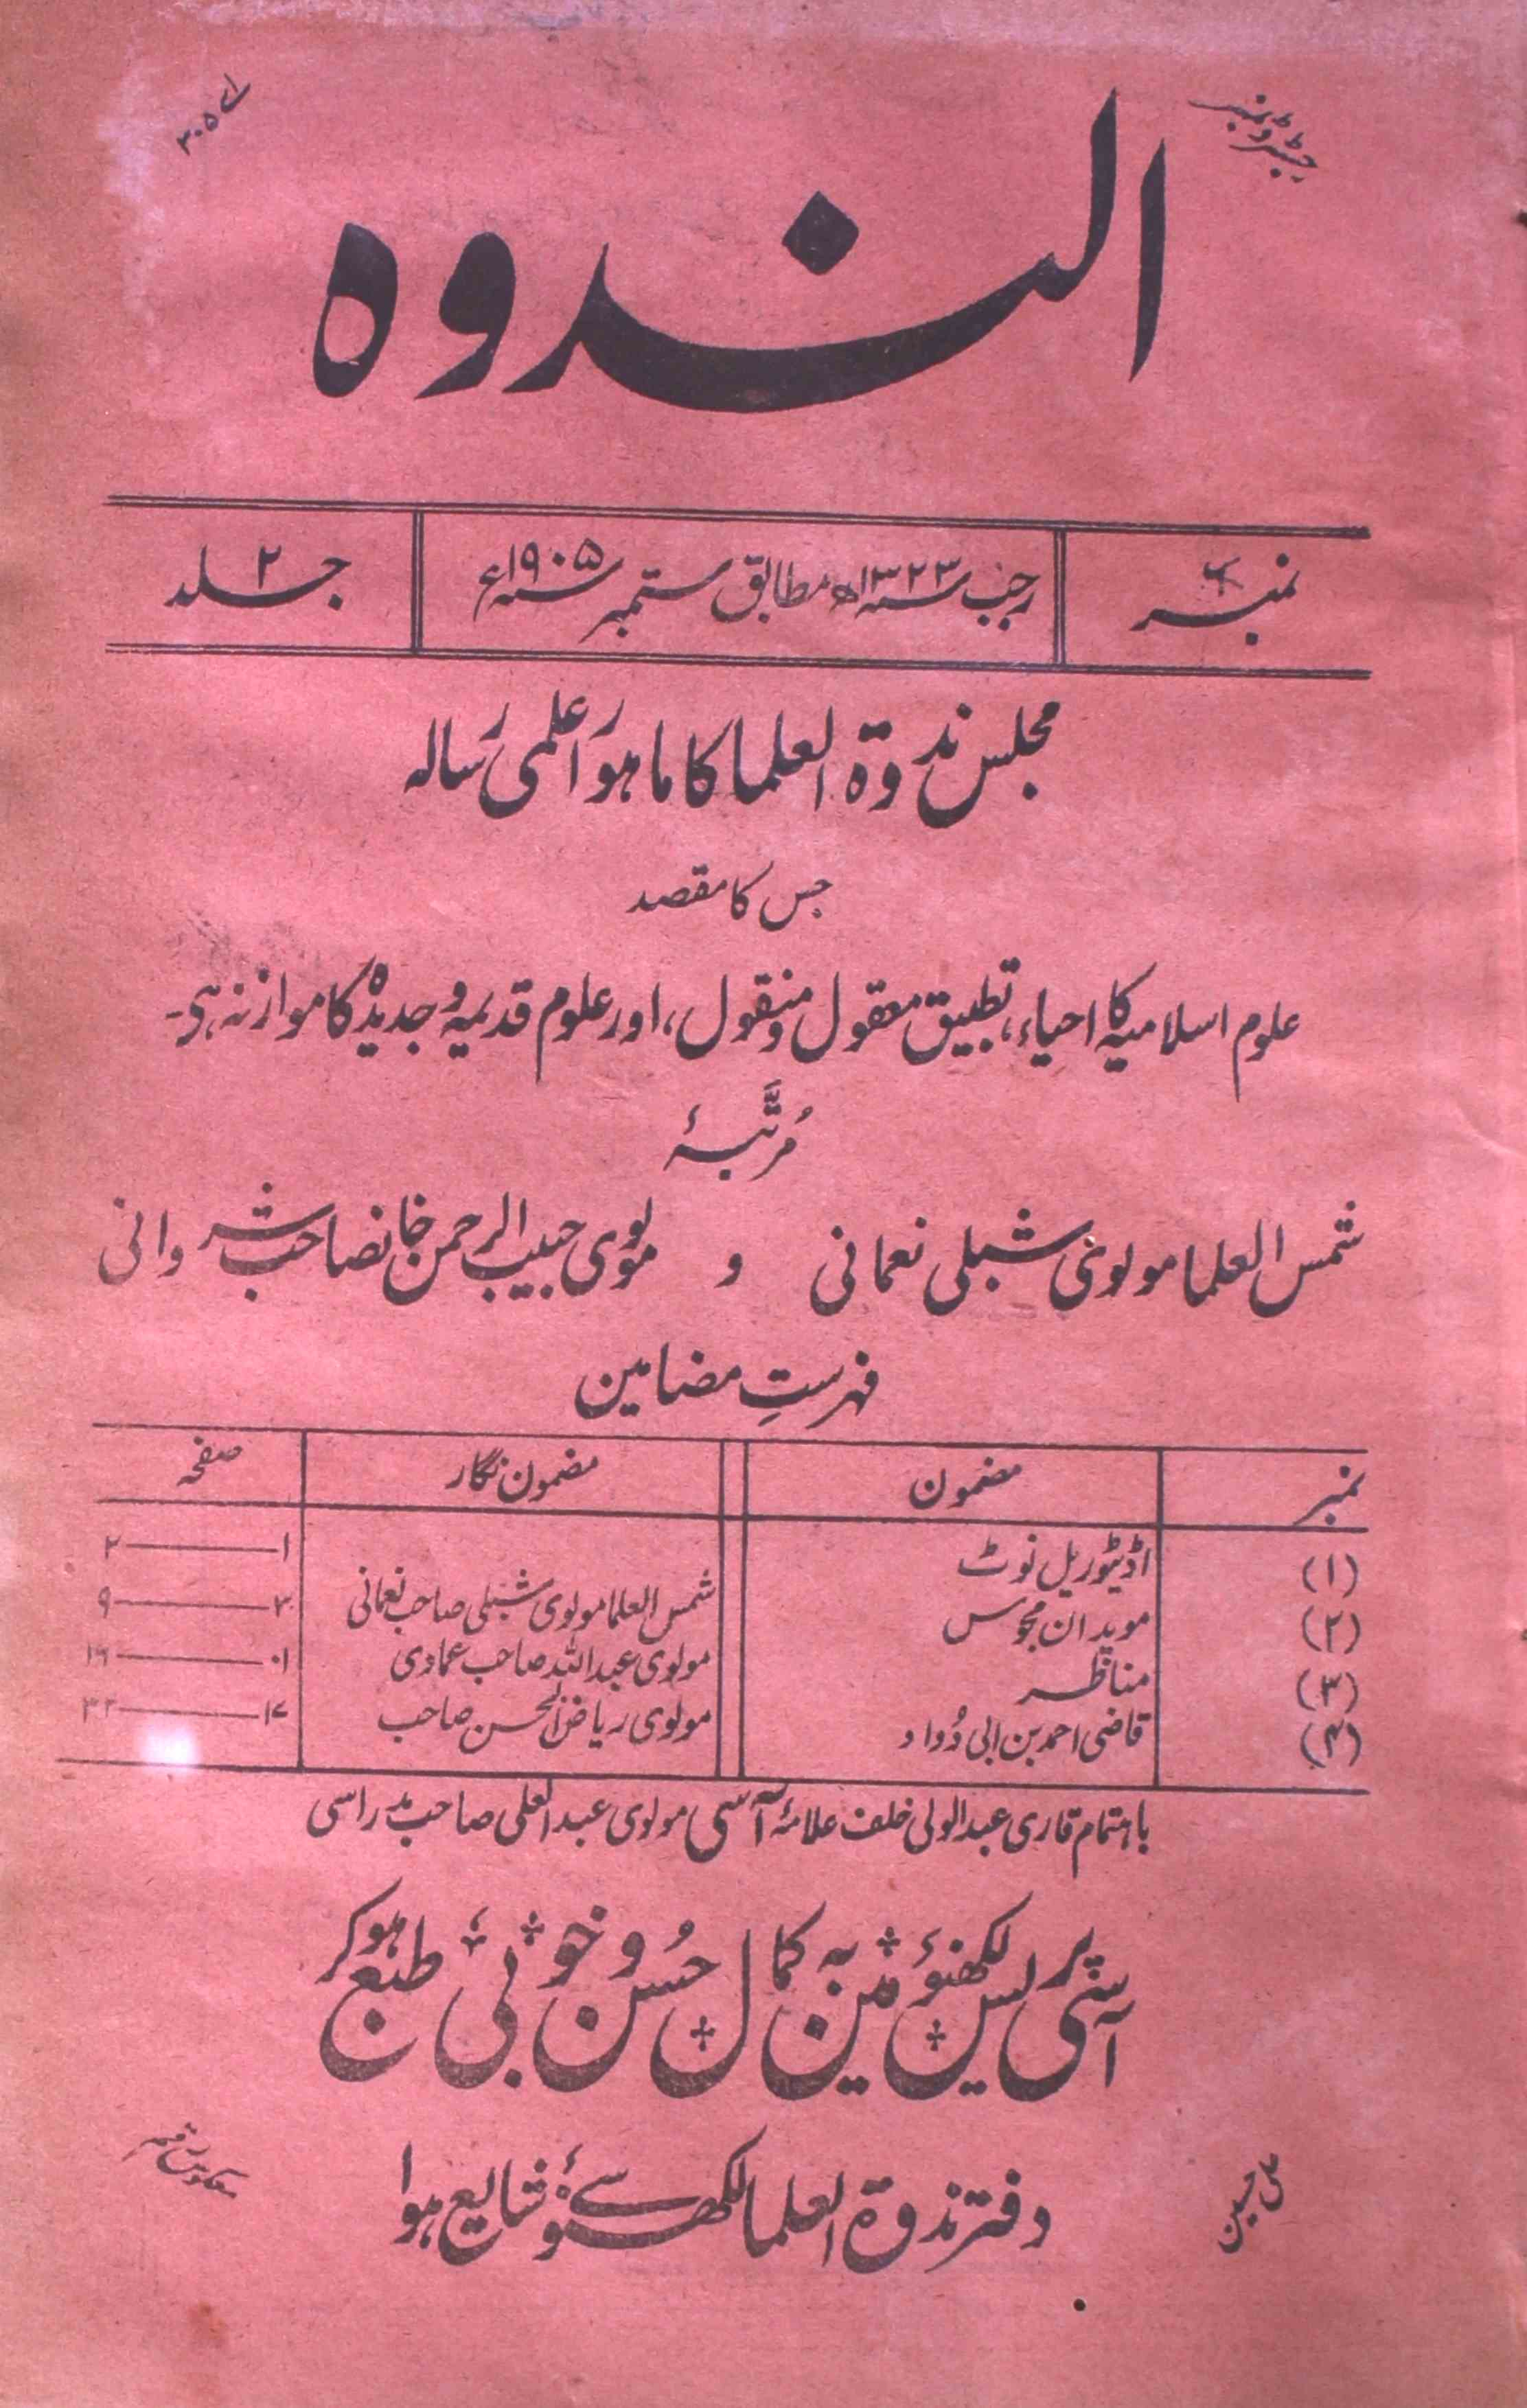 رجسٹرڈ نمبر
اے ۳۰۵
الندوہ
نمبر
رجب سنہ ۱۳۲۳ھ مطابق ستمبر سنہ ۱۹۰۵ع
جلد ۲
مجلس ندوۃ العلما کا ماہوار علمی رسالہ
جس کا مقصد
علوم اسلامیہ کا احیاء، تطبیق معقول و منقول، اور علوم قدیمہ و جدیدہ کا موازنہ ہی۔
مُرتَّبۂ
شمس العلما مولوی شبلی نعمانی و مولوی حبیب الرحمن خانصاحب شروانی
فہرستِ مضامین
نمبر مضمون مضمون نگار صفحہ
(۱) اڈیٹوریل نوٹ ۱ — ۲
(۲) موبدان مجوس شمس العلما مولوی شبلی صاحب نعمانی ۳ — ۹
(۳) مناظر مولوی عبداللہ صاحب عمادی ۱۰ — ۱۶
(۴) قاضی احمد بن ابی دُواد مولوی ریاض الحسن صاحب ۱۷ — ۳۲
باہتمام قاری عبدالولی خلف علامۂ آسی مولوی عبدالعلی صاحب مدراسی
آسی پریس لکھنؤ مین بہ کمال حُسن و خوبی طبع ہوکر
دفتر ندوۃ العلما لکھنؤ سے شایع ہوا